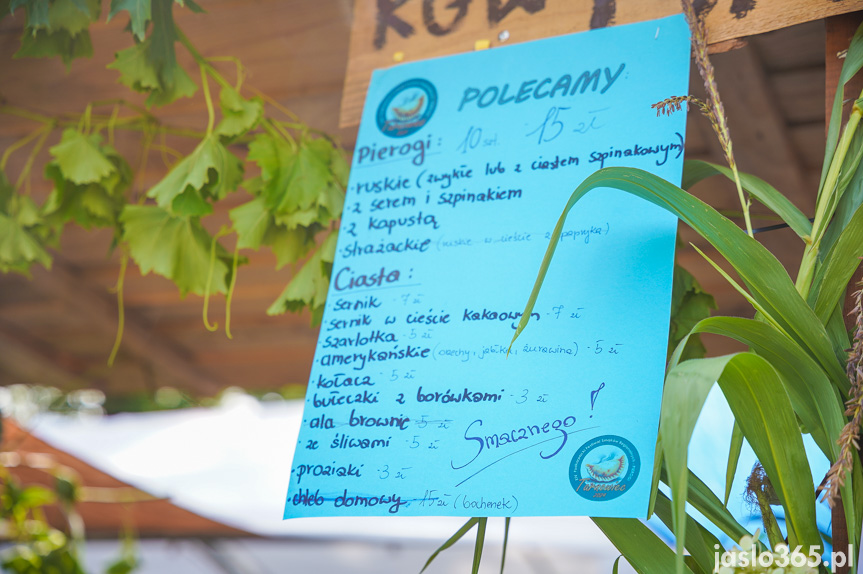 POLECAMY
Pierogi: 10 szt. 15 zł
- ruskie (zwykłe lub z ciastem szpinakowym)
- z serem i szpinakiem
- z kapustą
- strażackie (ruskie w cieście z papryką)
Ciasta:
· sernik · 7 zł
· sernik w cieście kakaowym · 7 zł
· szarlotka · 5 zł
· amerykańskie (orzechy, jabłka, żurawina) · 5 zł
· kołacz · 5 zł
· bułeczki z borówkami · 3 zł
· ala brownie · 5 zł
· ze śliwami · 5 zł
· proziaki · 3 zł
· chleb domowy · 15 zł (bochenek)
Smacznego!
jaslo365.pl